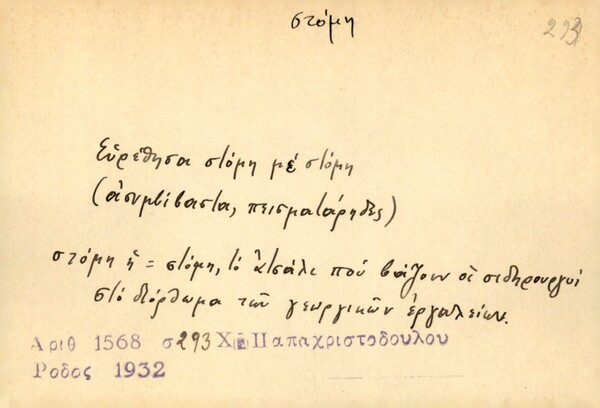 στόμη
293
Εὑρέθησα στόμη μέ στόμη
(ἀσυμβίβαστα, πεισματάρηδες)
στόμη ἡ = στόμη, τό ἀτσάλι πού βάζουν οἱ σιδηρουργοί
στό διόρθωμα τῶν γεωργικῶν ἐργαλείων.
Αριθ 1568 σ293 Χ Παπαχριστοδουλου
Ροδος 1932